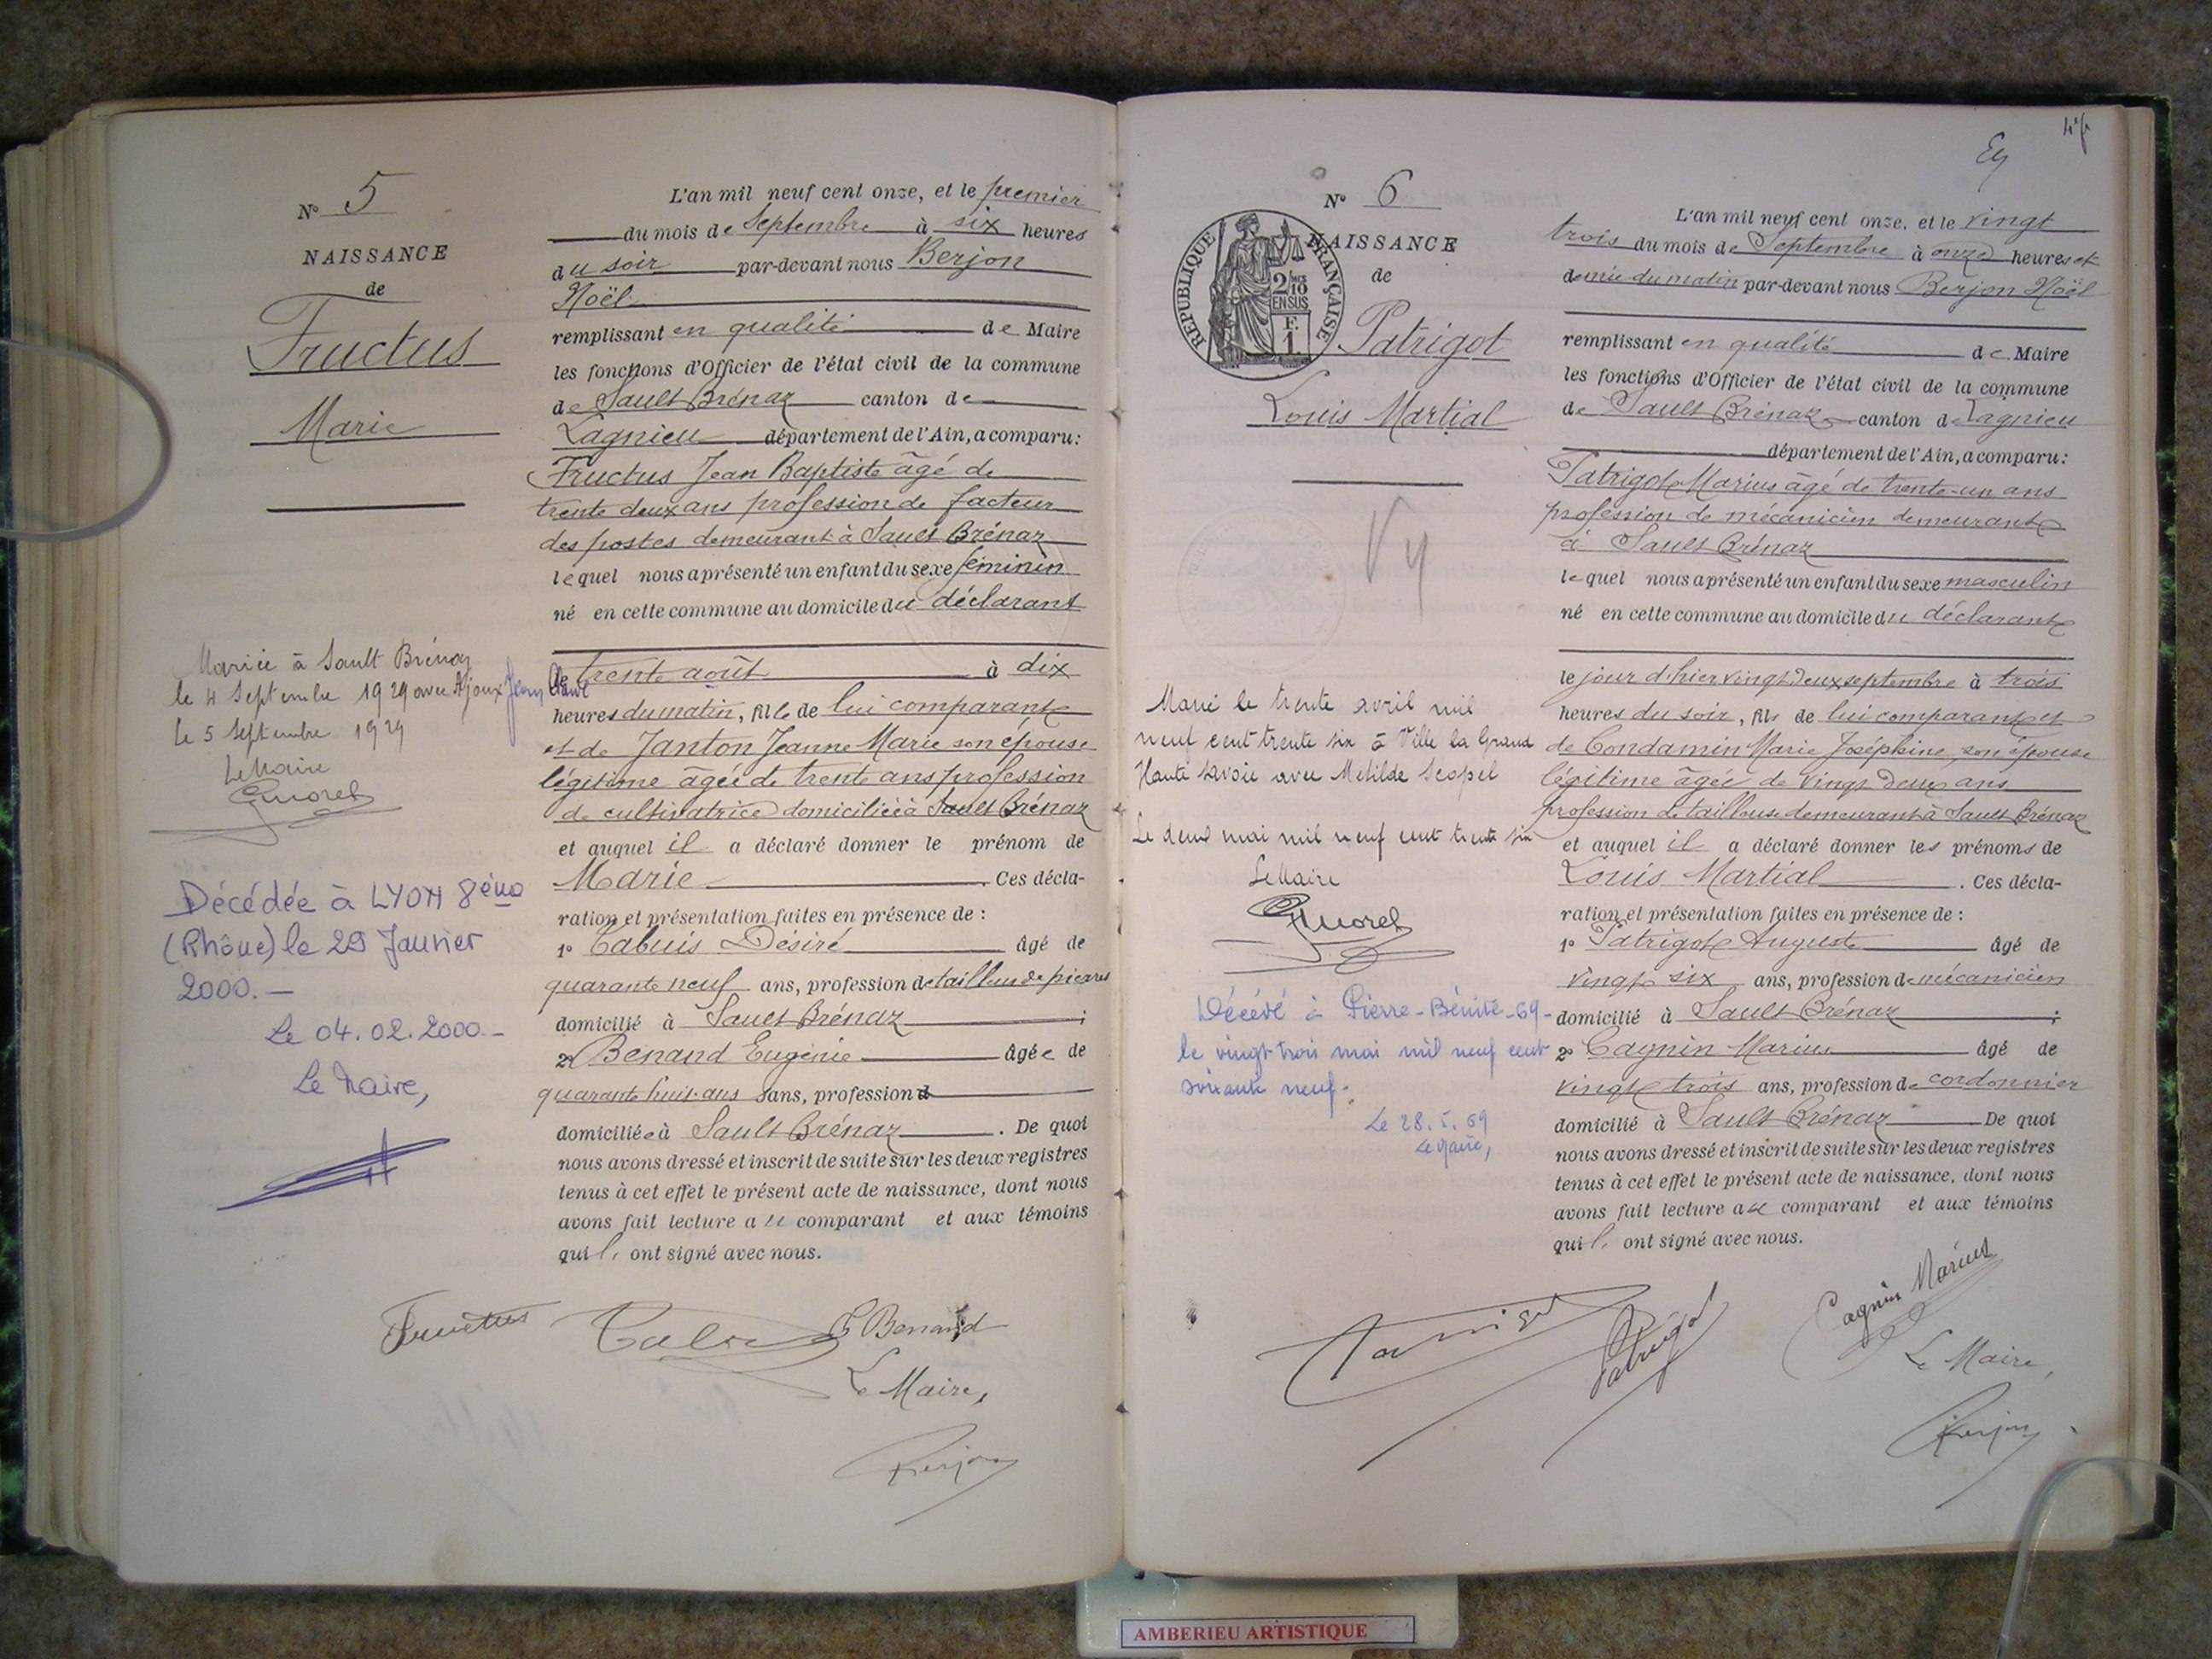 N° 5
NAISSANCE
de
Fructus
Marie
Mariée à Sault Brénaz
le 4 Septembre 1929 avec Ajoux Jean Claude
le 5 Septembre 1929
Le Maire
Décédée à LYON 8ème
(Rhône) le 29 Janvier
2000.—
Le 04.02.2000.—
Le Maire,
L'an mil neuf cent onze, et le premier
du mois de Septembre à six heures
du soir par-devant nous Berjon
Noël
remplissant en qualité de Maire
les fonctions d'Officier de l'état civil de la commune
de Sault Brénaz canton de
Lagnieu département de l'Ain, a comparu:
Fructus Jean Baptiste âgé de
trente deux ans profession de facteur
des postes demeurant à Sault Brénaz
lequel nous a présenté un enfant du sexe féminin
né en cette commune au domicile du déclarant
le trente août à dix
heures du matin, fille de lui comparant
et de Janton Jeanne Marie son épouse
légitime âgée de trente ans profession
de cultivatrice domiciliée à Sault Brénaz
et auquel il a déclaré donner le prénom de
Marie. Ces décla-
ration et présentation faites en présence de :
1° Cabuis Désiré âgé de
quarante neuf ans, profession de tailleur de pierres
domicilié à Sault Brénaz ;
2° Benand Eugénie âgée de
quarante huit ans ans, profession d
domiciliée à Sault Brénaz. De quoi
nous avons dressé et inscrit de suite sur les deux registres
tenus à cet effet le présent acte de naissance, dont nous
avons fait lecture au comparant et aux témoins
qui l' ont signé avec nous.
Fructus E Benand
Le Maire,
Berjon
47
N° 6
REPUBLIQUE FRANÇAISE
2/10 EN SUS
F. 1
NAISSANCE
de
Patrigot
Louis Martial
Marié le trente avril mil
neuf cent trente six à Ville la Grand
Haute Savoie avec Metilde Scopel
Le deux mai mil neuf cent trente six
Le Maire
Décédé à Pierre-Bénite-69-
le vingt trois mai mil neuf cent
soixante neuf.
Le 28.5.69
Le Maire,
L'an mil neuf cent onze, et le vingt
trois du mois de Septembre à onze heures et
demie du matin par-devant nous Berjon Noël
remplissant en qualité de Maire
les fonctions d'Officier de l'état civil de la commune
de Sault Brénaz canton de Lagnieu
département de l'Ain, a comparu:
Patrigot Marius âgé de trente-un ans
profession de mécanicien demeurant
à Sault Brénaz
lequel nous a présenté un enfant du sexe masculin
né en cette commune au domicile du déclarant
le jour d'hier vingt deux septembre à trois
heures du soir, fils de lui comparant et
de Condamin Marie Joséphine, son épouse
légitime âgée de vingt deux ans
profession de tailleuse demeurant à Sault Brénaz
et auquel il a déclaré donner les prénoms de
Louis Martial. Ces décla-
ration et présentation faites en présence de :
1° Patrigot Auguste âgé de
vingt six ans, profession de mécanicien
domicilié à Sault Brénaz ;
2° Cagnin Marius âgé de
vingt trois ans, profession de cordonnier
domicilié à Sault Brénaz De quoi
nous avons dressé et inscrit de suite sur les deux registres
tenus à cet effet le présent acte de naissance, dont nous
avons fait lecture au comparant et aux témoins
qui l' ont signé avec nous.
Patrigot Patrigot Cagnin Marius
Le Maire,
Berjon
AMBERIEU ARTISTIQUE